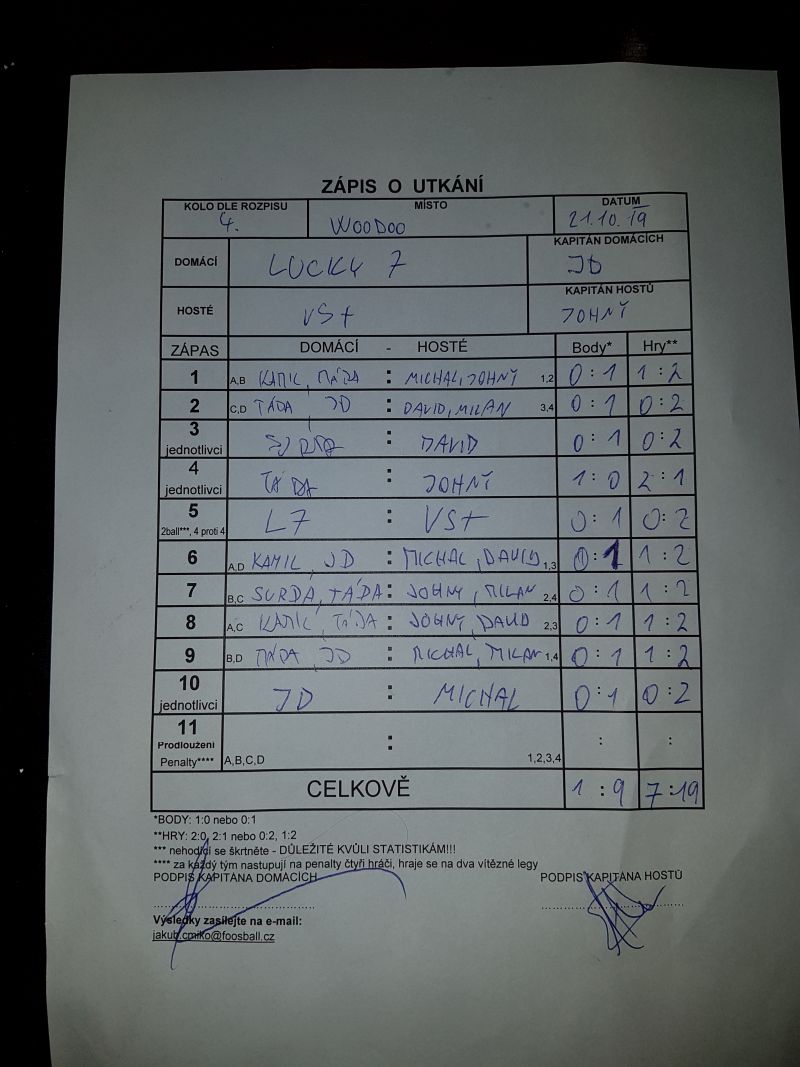 ZÁPIS O UTKÁNÍ
KOLO DLE ROZPISU MÍSTO DATUM
4. WOODOO 21.10.19
DOMÁCÍ LUCKY 7 KAPITÁN DOMÁCÍCH JD
HOSTÉ VS+ KAPITÁN HOSTŮ JOHNY
ZÁPAS DOMÁCÍ - HOSTÉ Body* Hry**
1 A,B KAMIL, MÁDA : MICHAL, JOHNY 1,2 0:1 1:2
2 C,D TÁDA, JD : DAVID, MILAN 3,4 0:1 0:2
3 jednotlivci : DAVID 0:1 0:2
4 jednotlivci TÁDA : JOHNY 1:0 2:1
5 2ball***, 4 proti 4 L7 : VS+ 0:1 0:2
6 A,D KAMIL, JD : MICHAL, DAVID 1,3 0:1 1:2
7 B,C SURDA, TÁDA : JOHNY, MILAN 2,4 0:1 1:2
8 A,C KAMIL, TÁDA : JOHNY, DAVID 2,3 0:1 1:2
9 B,D MÁDA, JD : MICHAL, MILAN 1,4 0:1 1:2
10 jednotlivci JD : MICHAL 0:1 0:2
11 Prodloužení Penalty**** A,B,C,D : 1,2,3,4 : :
CELKOVĚ 1:9 7:19
*BODY: 1:0 nebo 0:1
**HRY: 2:0, 2:1 nebo 0:2, 1:2
*** nehodící se škrtněte - DŮLEŽITÉ KVŮLI STATISTIKÁM!!!
**** za každý tým nastupují na penalty čtyři hráči, hraje se na dva vítězné legy
PODPIS KAPITÁNA DOMÁCÍCH PODPIS KAPITÁNA HOSTŮ
Výsledky zasílejte na e-mail:
jakub.cmiko@foosball.cz